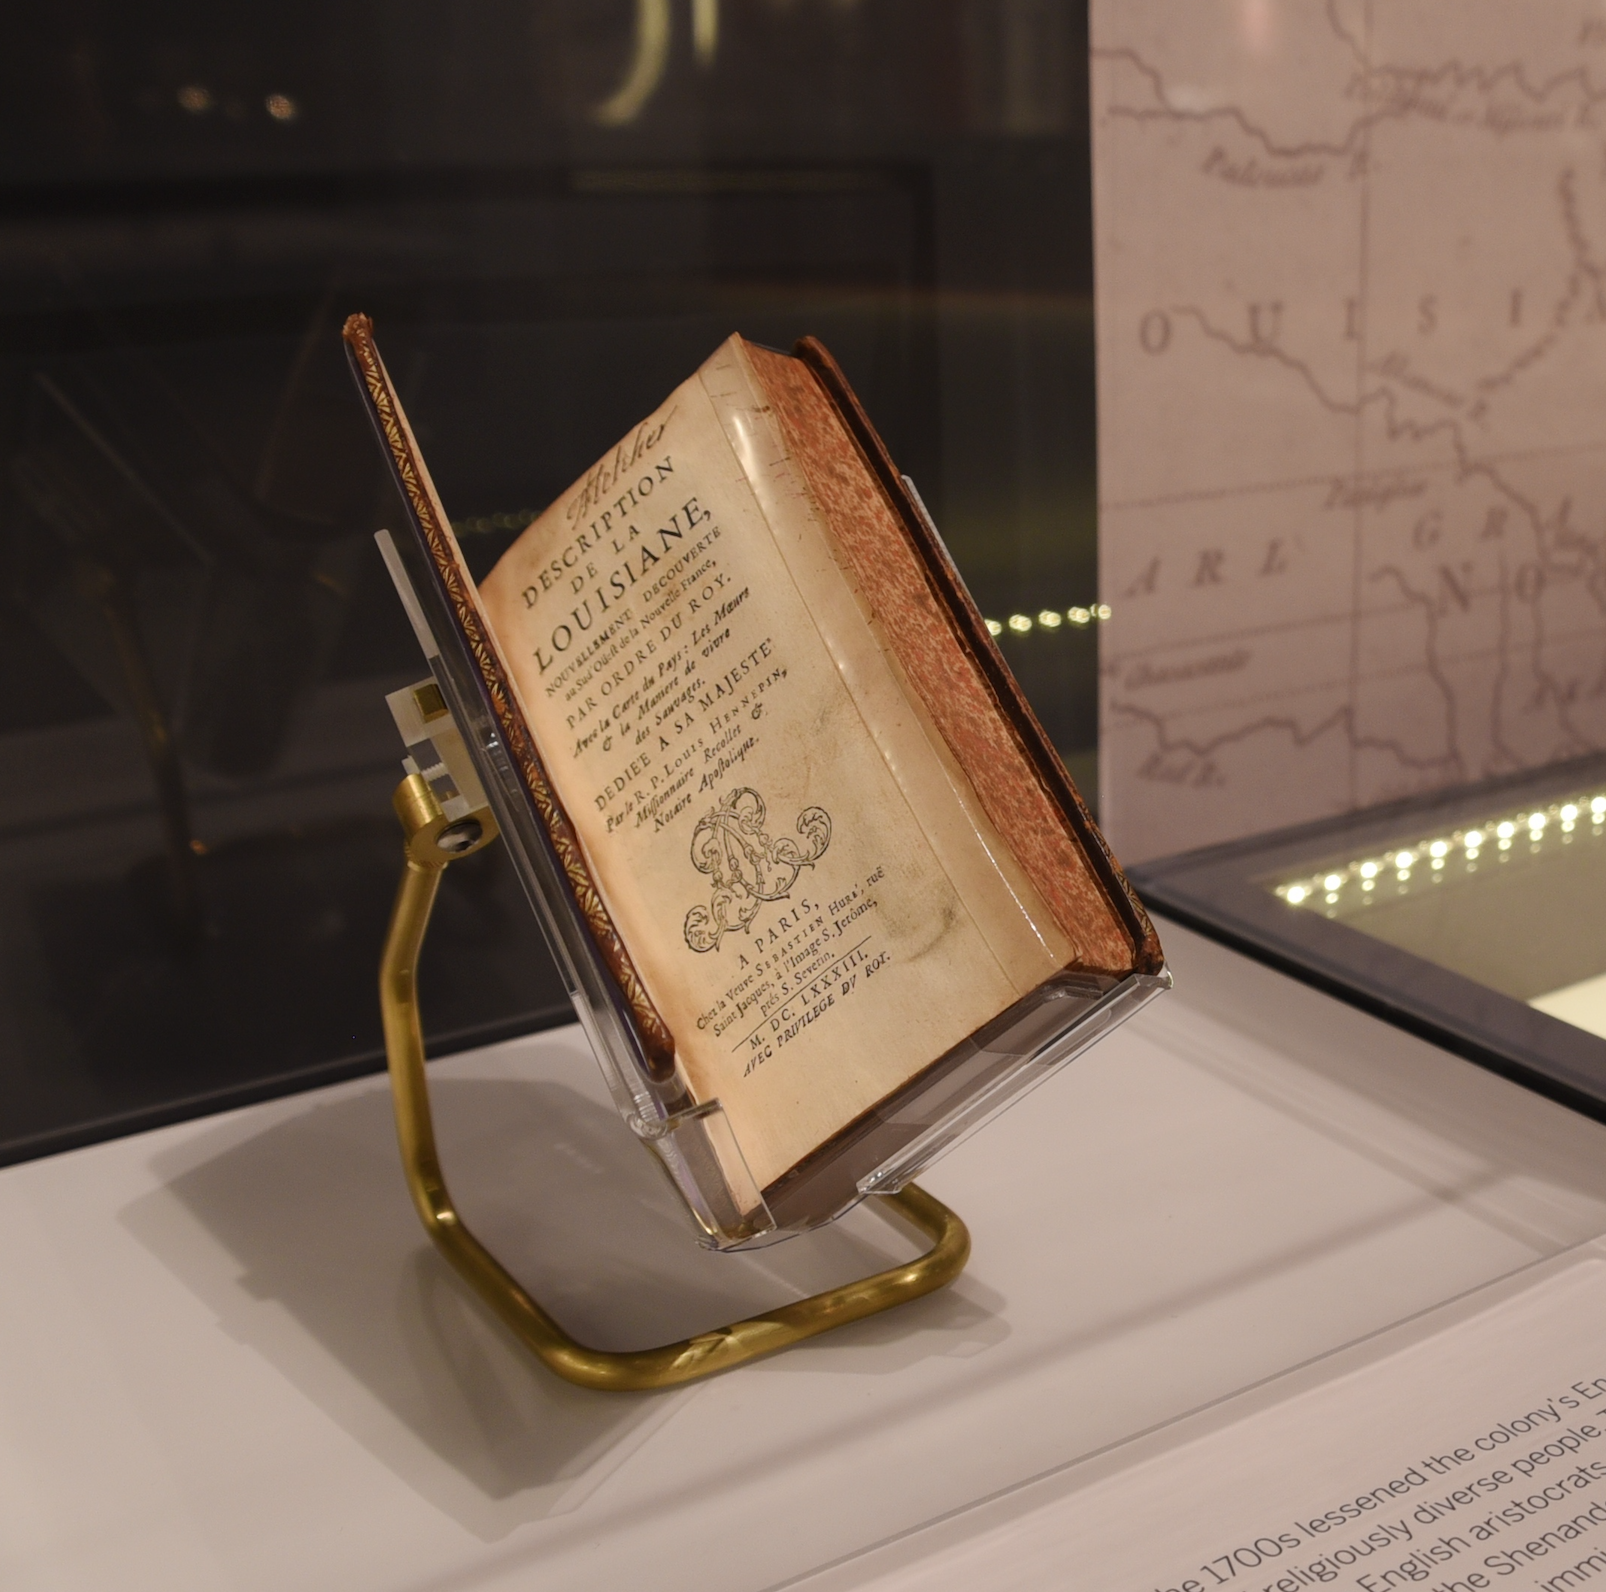 DESCRIPTION
DE LA
LOUISIANE,
NOUVELLEMENT DECOUVERTE
au Sud'Oüest de la Nouvelle France,
PAR ORDRE DU ROY.
Avec la Carte du Pays : Les Mœurs
& la Maniere de vivre
des Sauvages.
DEDIE'E A SA MAJESTE'
Par le R. P. LOUIS HENNEPIN,
Missionnaire Recollet &
Notaire Apostolique.
A PARIS,
Chez la Veuve SEBASTIEN HURE', ruë
Saint Jacques, à l'Image S. Jerôme,
prés S. Severin.
M. DC. LXXXIII.
AVEC PRIVILEGE DV ROY.
O U I S I
G R
A R L
N O
Red R.
he 1700s lessened the colony's En
religiously diverse people.
English aristocrats
he Shenand
immi